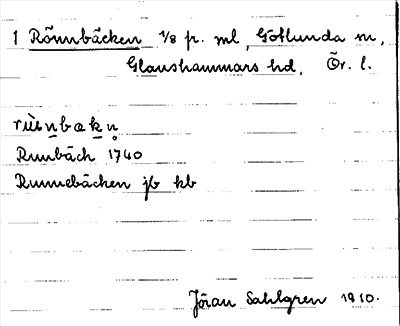 1 Rönnbäcken 1/8 fr. ml, Götlunda sn,
Glanshammars hd, Ör. l.
Runbäch 1740
Runnebäcken jb kb
Jöran Sahlgren 1910.